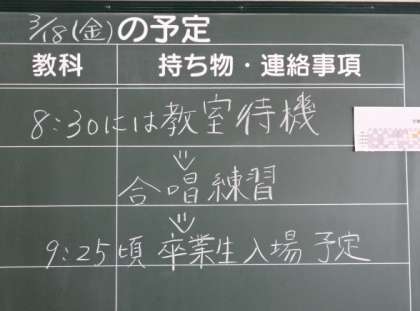 3/18(金)の予定
教科 持ち物・連絡事項
8:30には教室待機
⇓
合唱練習
⇓
9:25頃 卒業生入場 予定